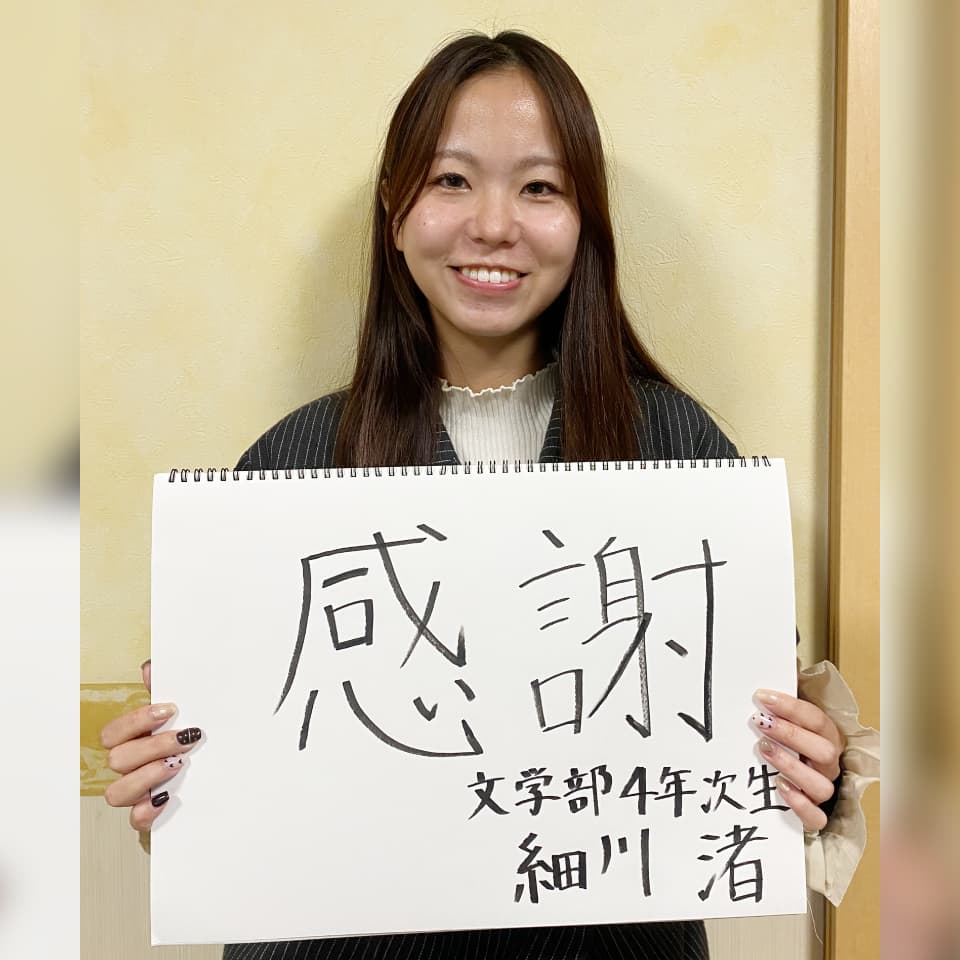 感謝
文学部4年次生
細川 渚